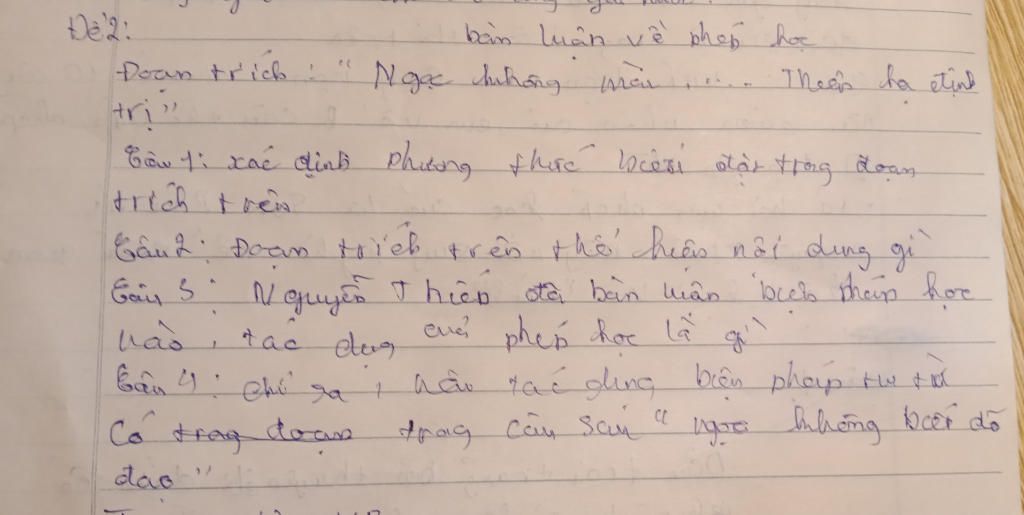 Đề 2: bàn luận về phép học
Đoạn trích: "Ngọc không mài ..... Thiên hạ định
trị"
Câu 1: xác định phương thức biểu đạt trog đoạn
trích trên
Câu 2: Đoạn trích trên thể hiện nội dung gì
Câu 3: Nguyễn Thiếp đã bàn luận phép học
nào, tác dụg của phép học là gì
Câu 4: chỉ ra, nêu tác dụng biện pháp tu từ
Có trog đoạn trog câu sau "ngọc không biết đõ
đạo"